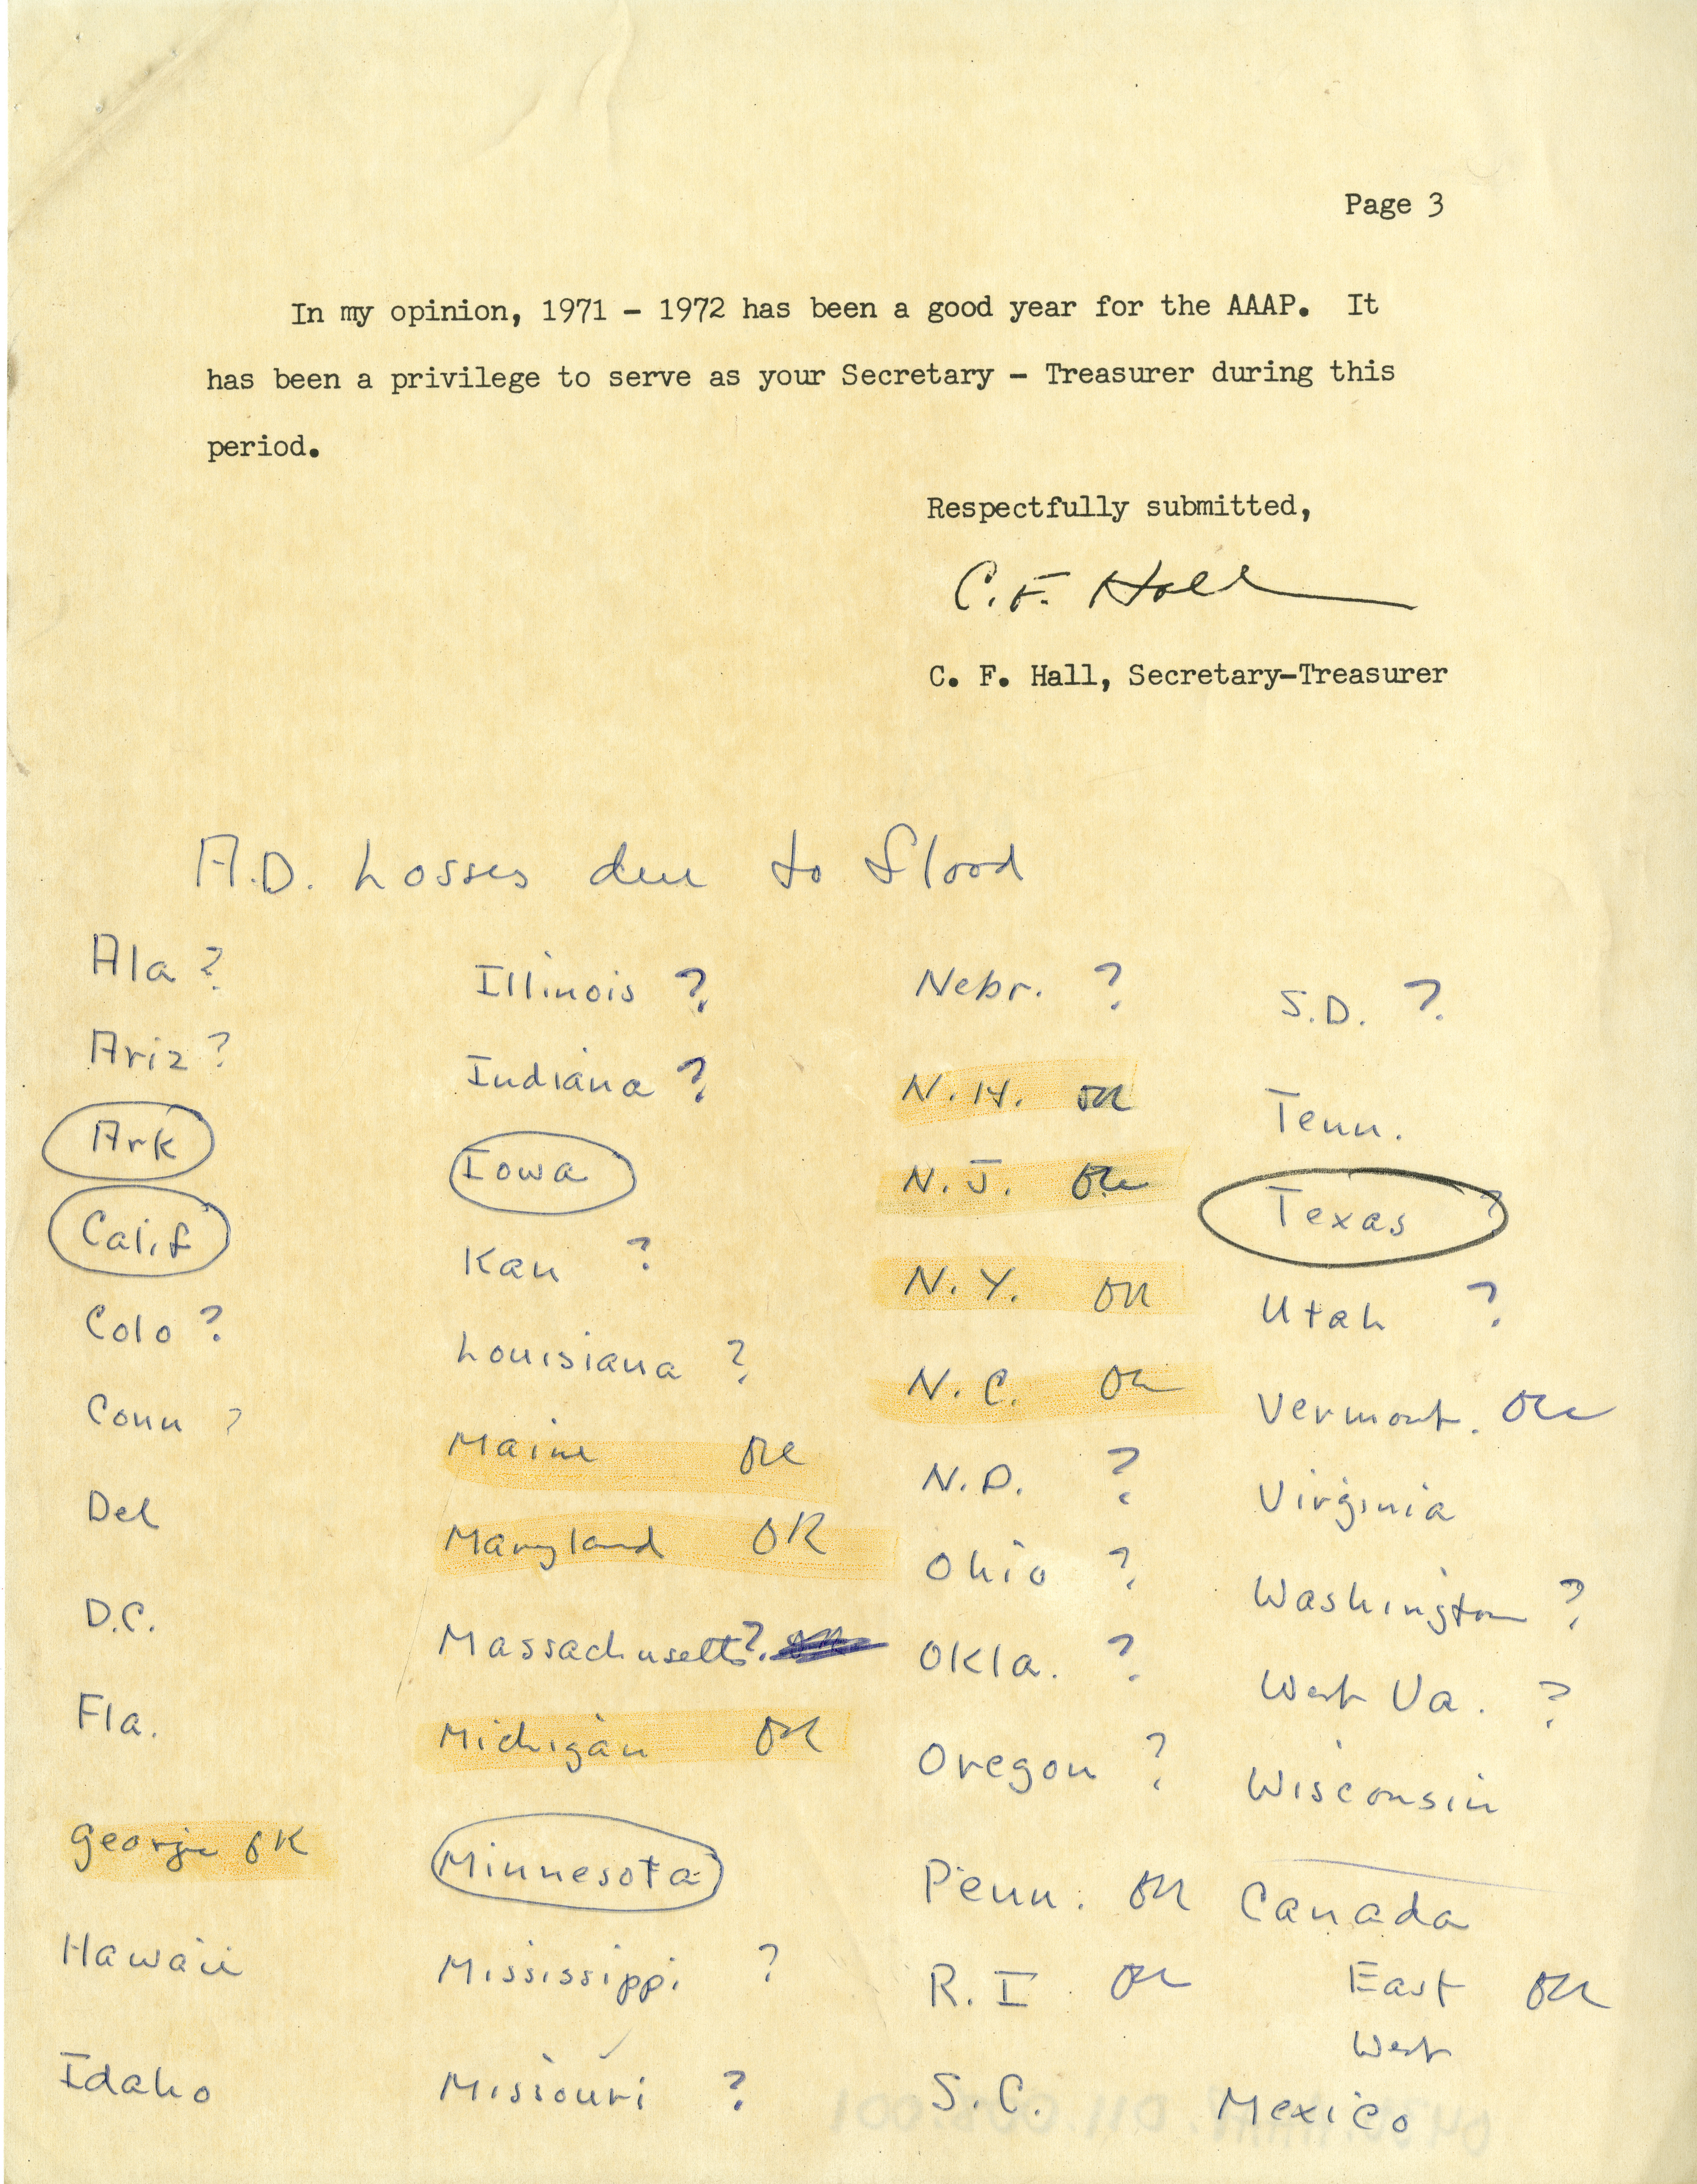 Page 3
In my opinion, 1971 - 1972 has been a good year for the AAAP. It
has been a privilege to serve as your Secretary - Treasurer during this
period.
Respectfully submitted,
C. F. Hall
C. F. Hall, Secretary-Treasurer
A.D. Losses due to flood
Ala ?
Ariz ?
Ark
Calif
Colo ?
Conn ?
Del
D.C.
Fla.
Georgia OK
Hawaii
Idaho
Illinois ?
Indiana ?
Iowa
Kan ?
Louisiana ?
Maine OK
Maryland OK
Massachusetts ?
Michigan OK
Minnesota
Mississippi ?
Missouri ?
Nebr. ?
N.H. OK
N.J. OK
N.Y. OK
N.C. OK
N.D. ?
Ohio ?
Okla. ?
Oregon ?
Penn. OK
R.I. OK
S.C.
S.D. ?
Tenn.
Texas ?
Utah ?
Vermont. OK
Virginia
Washington ?
West Va. ?
Wisconsin
Canada
East OK
West
Mexico